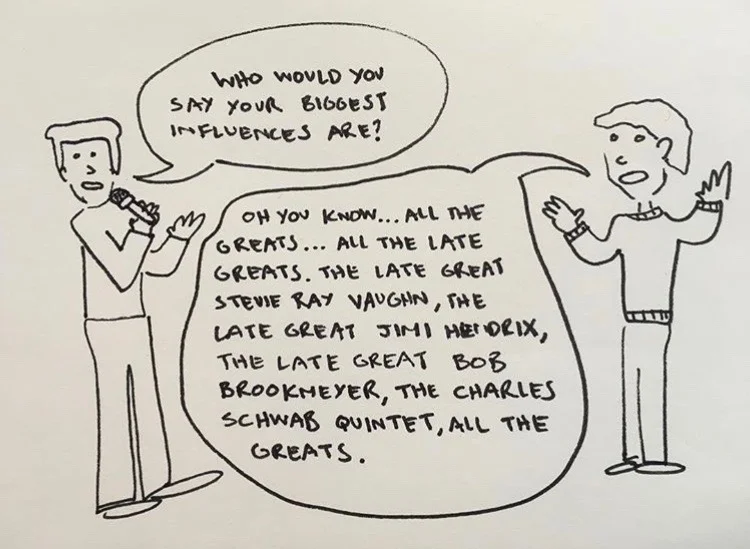 WHO WOULD YOU
SAY YOUR BIGGEST
INFLUENCES ARE?
OH YOU KNOW... ALL THE
GREATS... ALL THE LATE
GREATS. THE LATE GREAT
STEVIE RAY VAUGHN, THE
LATE GREAT JIMI HENDRIX,
THE LATE GREAT BOB
BROOKMEYER, THE CHARLES
SCHWAB QUINTET, ALL THE
GREATS.